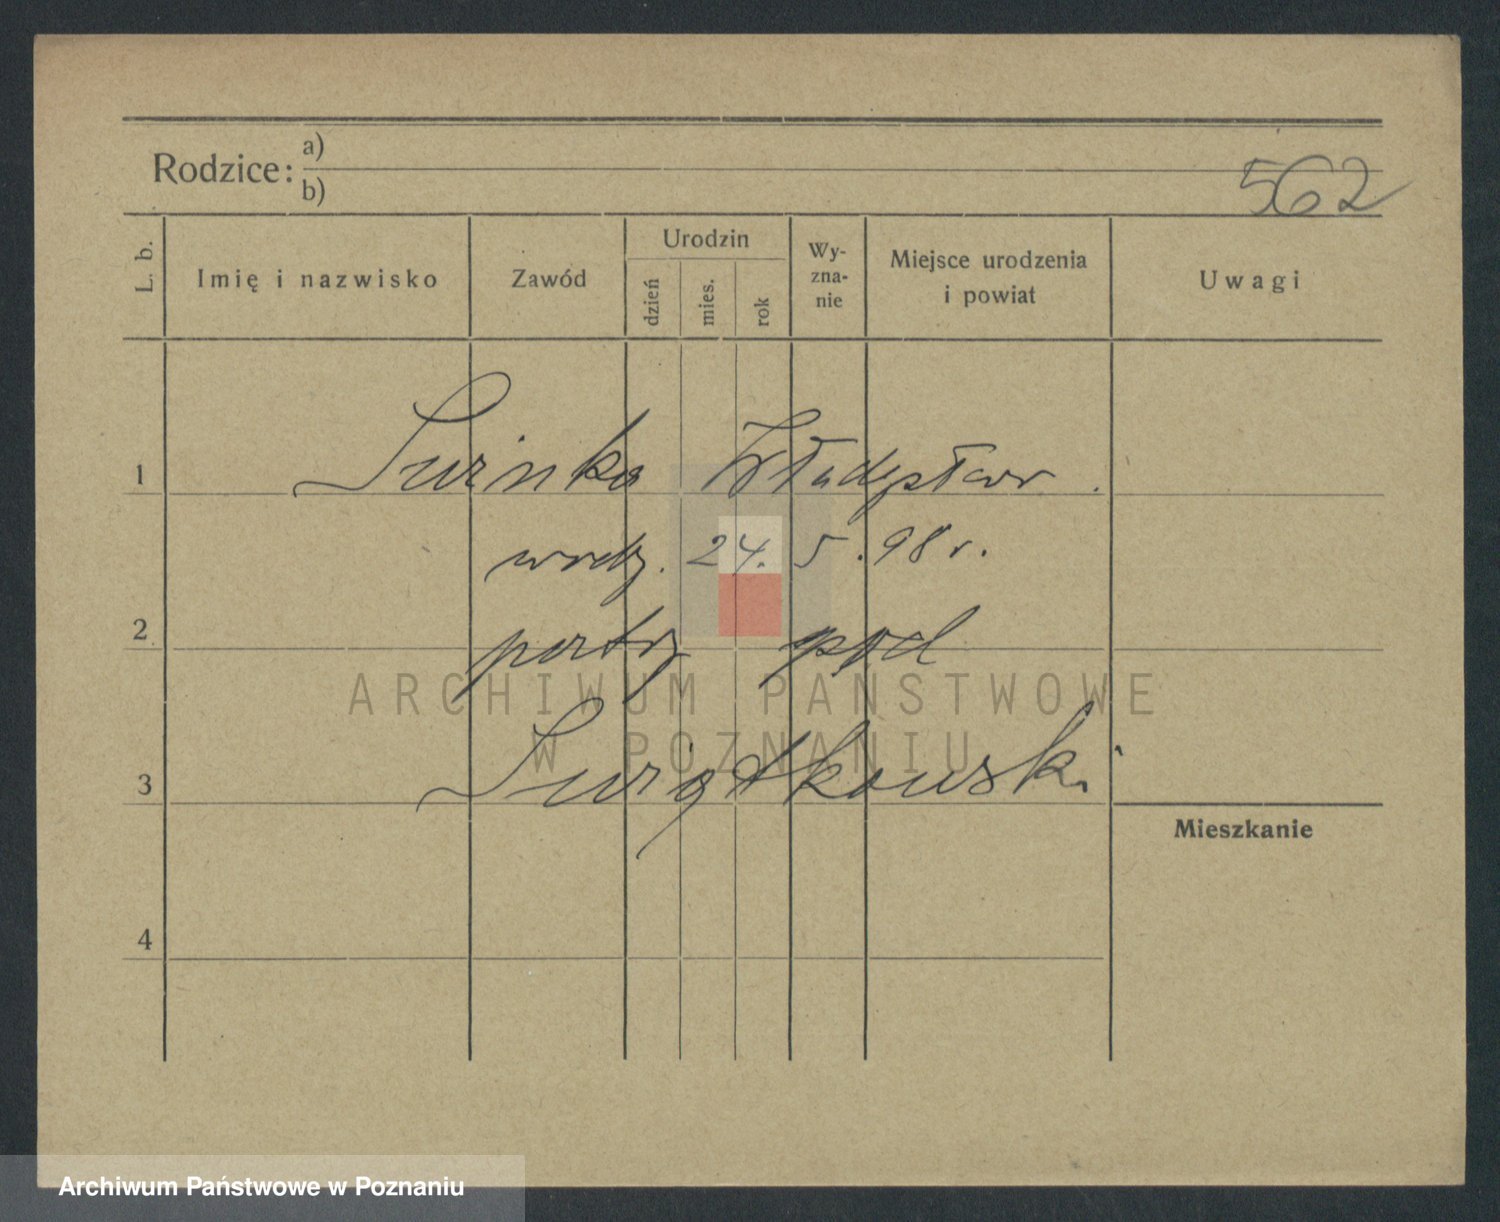 Rodzice: a)
b)
562
L. b.
Imię i nazwisko
Zawód
Urodzin
dzień
mies.
rok
Wy-
zna-
nie
Miejsce urodzenia
i powiat
Uwagi
1
Świnka Władysław.
urodz. 24. 5. 98 r.
2
patrz pod
ARCHIWUM PAŃSTWOWE
W POZNANIU
3
Świątkowski
Mieszkanie
4
Archiwum Państwowe w Poznaniu